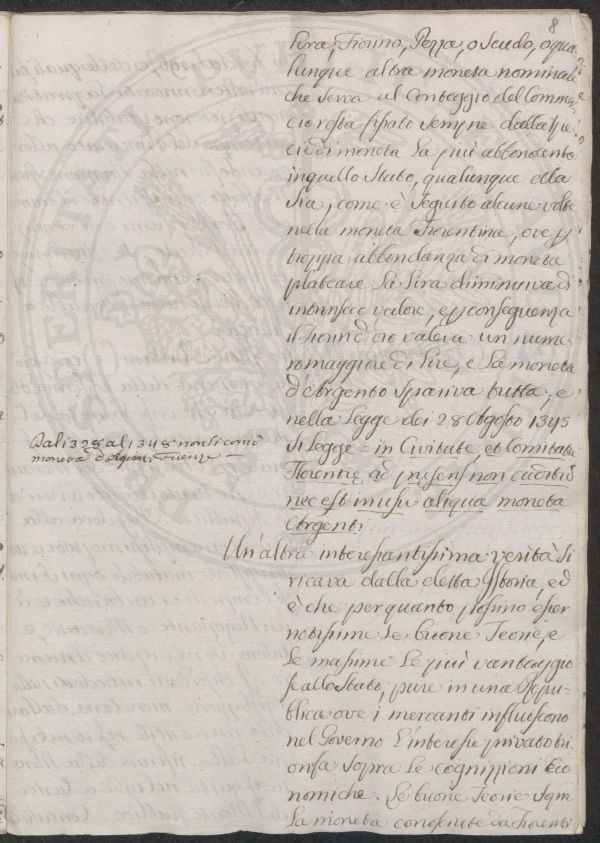 8
Lira, Fiorino, Pezza, o Scudo, o qua
lunque altra moneta nominale
che serva al Conteggio del Commer
cio resta fissato sempre dalla spe
cie di moneta la più abbondante
in quello Stato, qualunque ella
sia, come è seguito alcune volte
nella moneta Fiorentina, ove p
troppa abbondanza di moneta
plateare la Lira diminuiva d
intrinseco valore, e p conseguenza
il Fiorin d'oro valeva un nume
ro maggiore di Lire, e la moneta
d'Argento spariva tutta, e
nella Legge dei 28 Agosto 1345
si legge = in Civitate, et Comitatu
Florentie, ad presens non caditur
nec est in usu aliqua moneta
Argenti
Dal 1328 al 1348 non si coniò
moneta d'Argento Firenze —
Un'altra interessantissima verità si
ricava dalla detta Istoria, ed
è che per quanto possino esser
notissime le buone Teorie, e
le massime le più vantaggio
se allo Stato, pure in una Repu-
blica ove i mercanti influiscono
nel Governo l'interesse privato tri
onfa sopra le cognizzioni Eco
nomiche. Le buone Teorie sopra
la moneta conosciute da Fiorenti